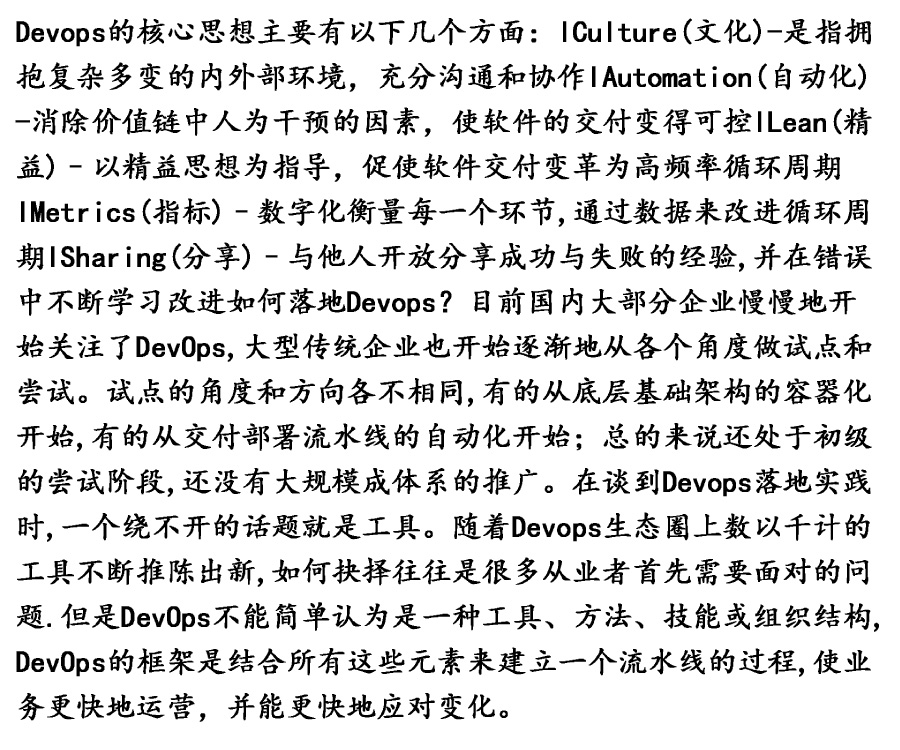 Devops的核心思想主要有以下几个方面：lCulture(文化)-是指拥
抱复杂多变的内外部环境，充分沟通和协作lAutomation(自动化)
-消除价值链中人为干预的因素，使软件的交付变得可控lLean(精
益) - 以精益思想为指导，促使软件交付变革为高频率循环周期
lMetrics(指标) - 数字化衡量每一个环节,通过数据来改进循环周
期lSharing(分享) - 与他人开放分享成功与失败的经验,并在错误
中不断学习改进如何落地Devops？目前国内大部分企业慢慢地开
始关注了DevOps,大型传统企业也开始逐渐地从各个角度做试点和
尝试。试点的角度和方向各不相同,有的从底层基础架构的容器化
开始,有的从交付部署流水线的自动化开始；总的来说还处于初级
的尝试阶段,还没有大规模成体系的推广。在谈到Devops落地实践
时,一个绕不开的话题就是工具。随着Devops生态圈上数以千计的
工具不断推陈出新,如何抉择往往是很多从业者首先需要面对的问
题.但是DevOps不能简单认为是一种工具、方法、技能或组织结构,
DevOps的框架是结合所有这些元素来建立一个流水线的过程,使业
务更快地运营，并能更快地应对变化。